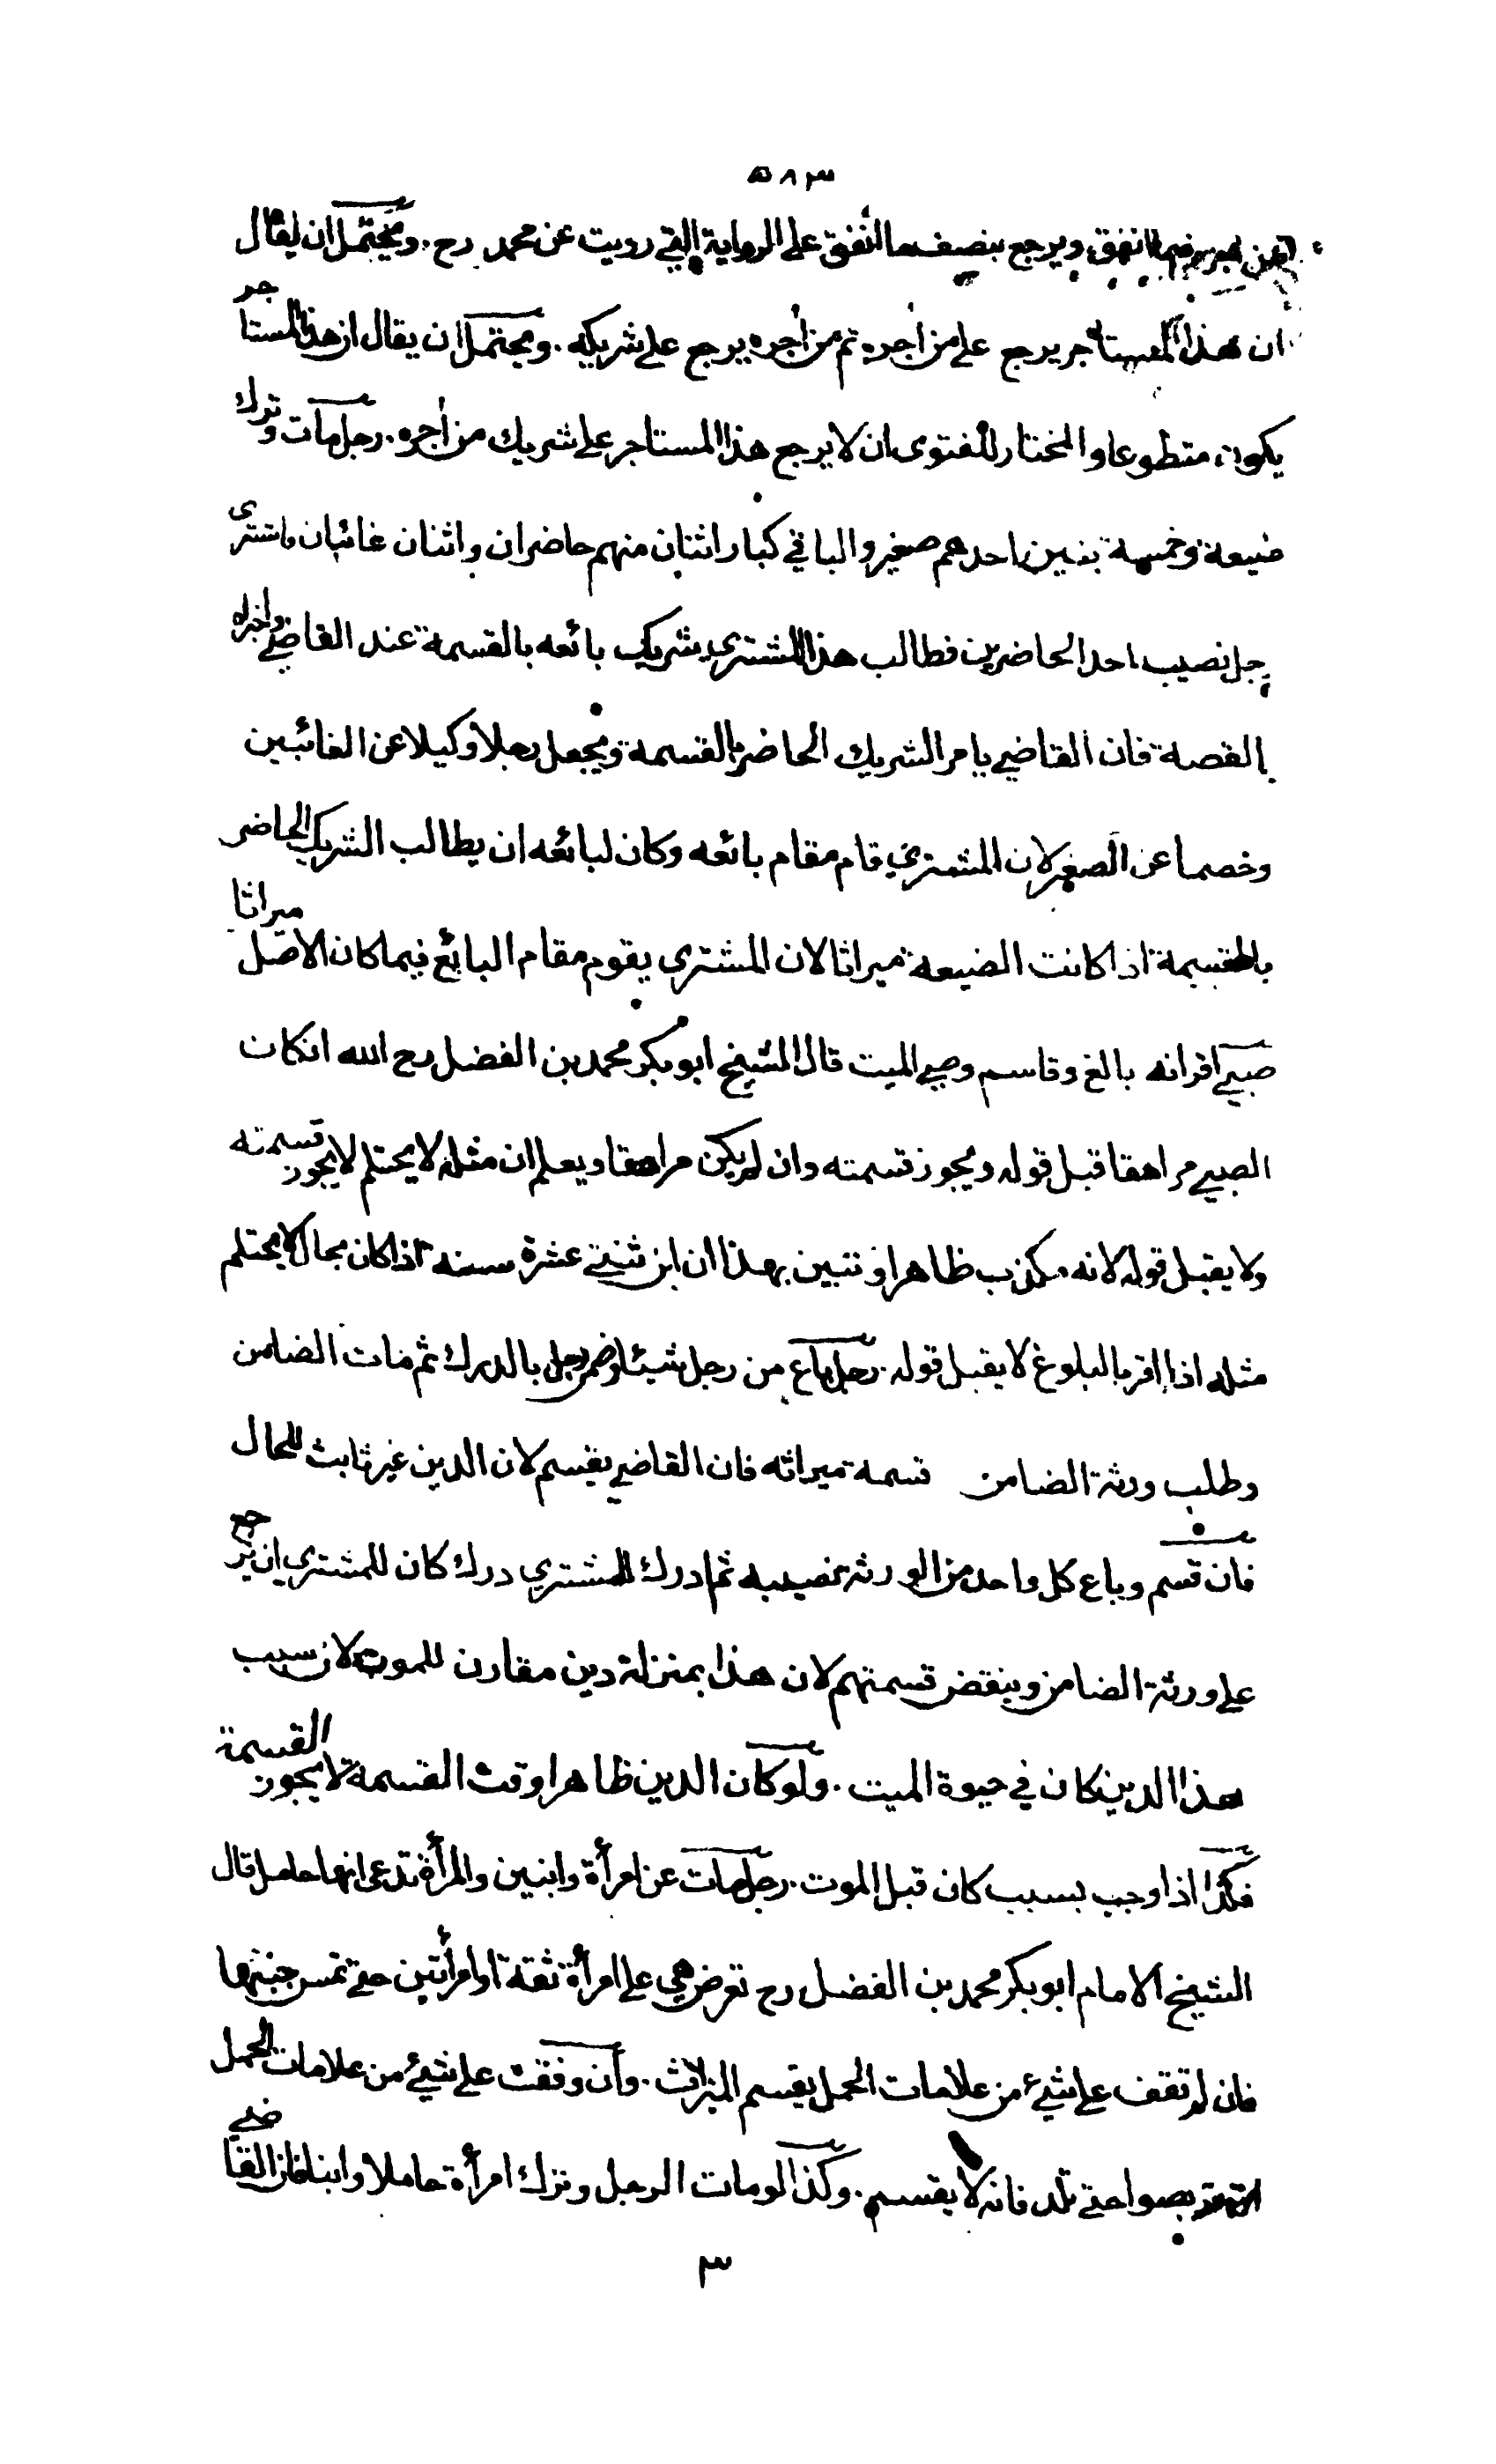 ٥٨٣
فيما انفق ويرجع بنصف ما انفق على الرواية التي رويت عن محمد رح . ويحتمل ان يقال
ان هذا المستاجر يرجع على من أجره ثم من أجره يرجع على شريكه . ويحتمل ان يقال ان هذا المستاجر
يكون متطوعا والمختار للفتوى ان لا يرجع هذا المستاجر على شريك من أجره . رجل مات وترك
ضيعة وخمسة بنين احدهم صغير والباقي كبار اثنان منهم حاضران واثنان غائبان فاشترى
رجل نصيب احد الحاضرين فطالب هذا المشتري شريك بائعه بالقسمة عند القاضي واخبراه
بالقصة فان القاضي يامر الشريك الحاضر بالقسمة ويجعل رجلا وكيلا عن الغائبين
وخصما عن الصغير لان المشتري قام مقام بائعه وكان لبائعه ان يطالب الشريك الحاضر
بالقسمة اذا كانت الضيعة ميراثا لان المشتري يقوم مقام البائع فيما كان الاصل ميراثا
صبي اقر انه بالغ وقاسم وصي الميت قال الشيخ ابو بكر محمد بن الفضل رح الله انكان
الصبي مراهقا قبل قوله ويجوز قسمته وان لم يكن مراهقا ويعلم ان مثله لا يحتلم لا يجوز قسمته
ولا يقبل قوله لانه مكذب ظاهرا وتبين بهذا ان ابن ثنتي عشرة سنه اذا كان بحال لا يحتلم
مثله اذا اقر بالبلوغ لا يقبل قوله . رجل باع من رجل شيئا وضمن رجل بالدرك ثم مات الضامن
وطلب ورثة الضامن قسمة ميراثه فان القاضي يقسم لان الدين غير ثابت للحال
فان قسم وباع كل واحد من الورثة نصيبه ثم ادرك المشتري درك كان للمشتري ان يرجع
على ورثة الضامن وينقض قسمتهم لان هذا بمنزلة دين مقارن للموت لان سبب
هذا الدين كان في حيوة الميت . ولو كان الدين ظاهرا وقت القسمة لا يجوز القسمة
فكذا اذا وجب بسبب كان قبل الموت . رجل مات عن امرأة وابنين والمرأة تدعى انها حامل قال
الشيخ الامام ابو بكر محمد بن الفضل رح تعرض هي على امرأة ثقة او امرأتين حتى تمس جنبتها
فان لم تقف على شيء من علامات الحمل يقسم الميراث . وان وقفت على شيء من علامات الحمل
تربصوا حتى تلد فانه لا يقسم . وكذا لو مات الرجل وترك امرأة حاملا وابنا فان القاضي
٣